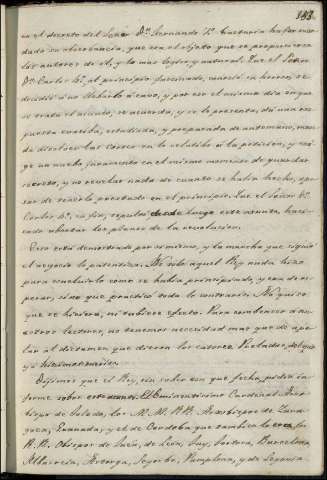 133.
en el decreto del Señor Dn. Fernando 7º. bastaría haber man-
dado su observancia, que era el objeto que se propusieron
los autores de él, y lo mas legal y natural. Que el Señor
Dn. Carlos 4º. al principio fascinado, cuando su
decidió á no llevarlo á cavo, y por eso el mismo dia en que
se trata el asunto, se acuerda, y se le presenta, dá una res-
puesta escrita, estudiada, y preparada de antemano, man-
da á las Cortes en lo relativo á la peticion, y exi-
ge un nuevo juramento en el mismo momento de guardar
secreto, y no revelar nada de cuanto se habia hecho, apesar
de haberlo prestado en el principio. Que el Señor Dn.
Carlos 4º. en fin, sepultó desde luego este asunto, hacien-
do abortar los planes de la revolucion.
Esto está demostrado por sí mismo, y la marcha que siguió
el negocio lo patentiza. No solo aquel Rey nada hizo
para concluirlo como se habia principiado, y era de es-
perar, sino que practicó todo lo contrario. No quiso
que se hiciera, ni tubiese efecto. Para convencer á nu-
estros lectores, no tenemos necesidad mas que de ape-
lar al dictamen que dieron los catorce Prelados,
y
Dijimos que el Rey, sin saber con que fecha, pidió in-
forme sobre este asunto. El Eminentísimo Cardenal Arzo-
bispo de Toledo, los M.M. R.R. Arzobispos de Zara-
goza, Granada, y el de Cordoba que tambien lo era, los
R.R. Obispos de Jaén, de León, Tuy, Tortosa, Barcelona,
Albarracin, Astorga, Segorbe, Pamplona, y de Segovia